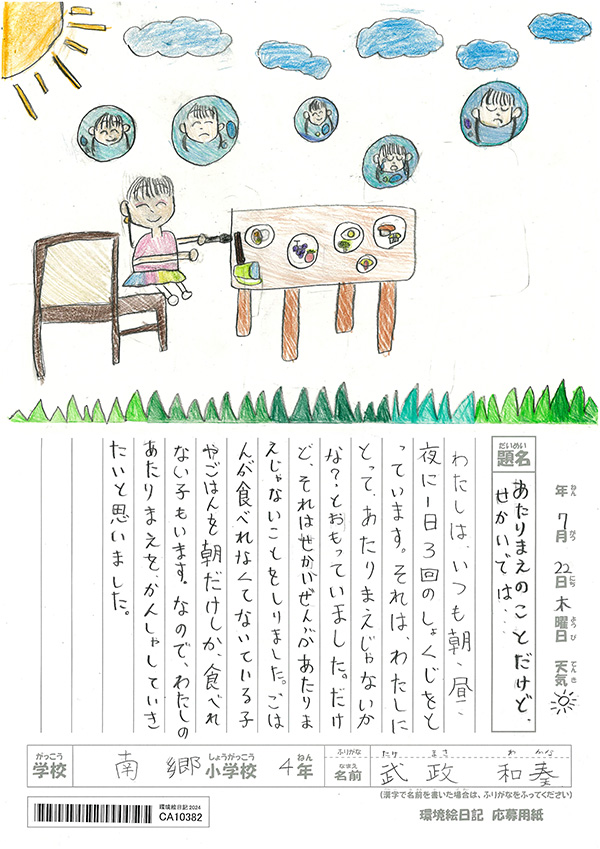 年ねん 7月がつ 22日にち 木曜日ようび 天気てんき
題名だいめい
あたりまえのことだけど、
せかいでは、、、
わたしは、いつも朝、昼、
夜に1日3回のしょくじをと
っています。それは、わたしに
とって、あたりまえじゃないか
な?とおもっていました。だけ
ど、それはせかいぜんぶがあたりま
えじゃないことをしりました。ごは
んが食べれなくてないている子
やごはんを朝だけしか、食べれ
ない子もいます。なので、わたしの
あたりまえを、かんしゃしていき
たいと思いました。
がっこう 学校 南郷 しょうがっこう 小学校 4年ねん ふりがな なまえ 名前 たけ まさ わ かな 武政 和奏
(漢字で名前を書いた場合は、ふりがなをふってください)
環境絵日記 2024
CA10382
環境絵日記 応募用紙